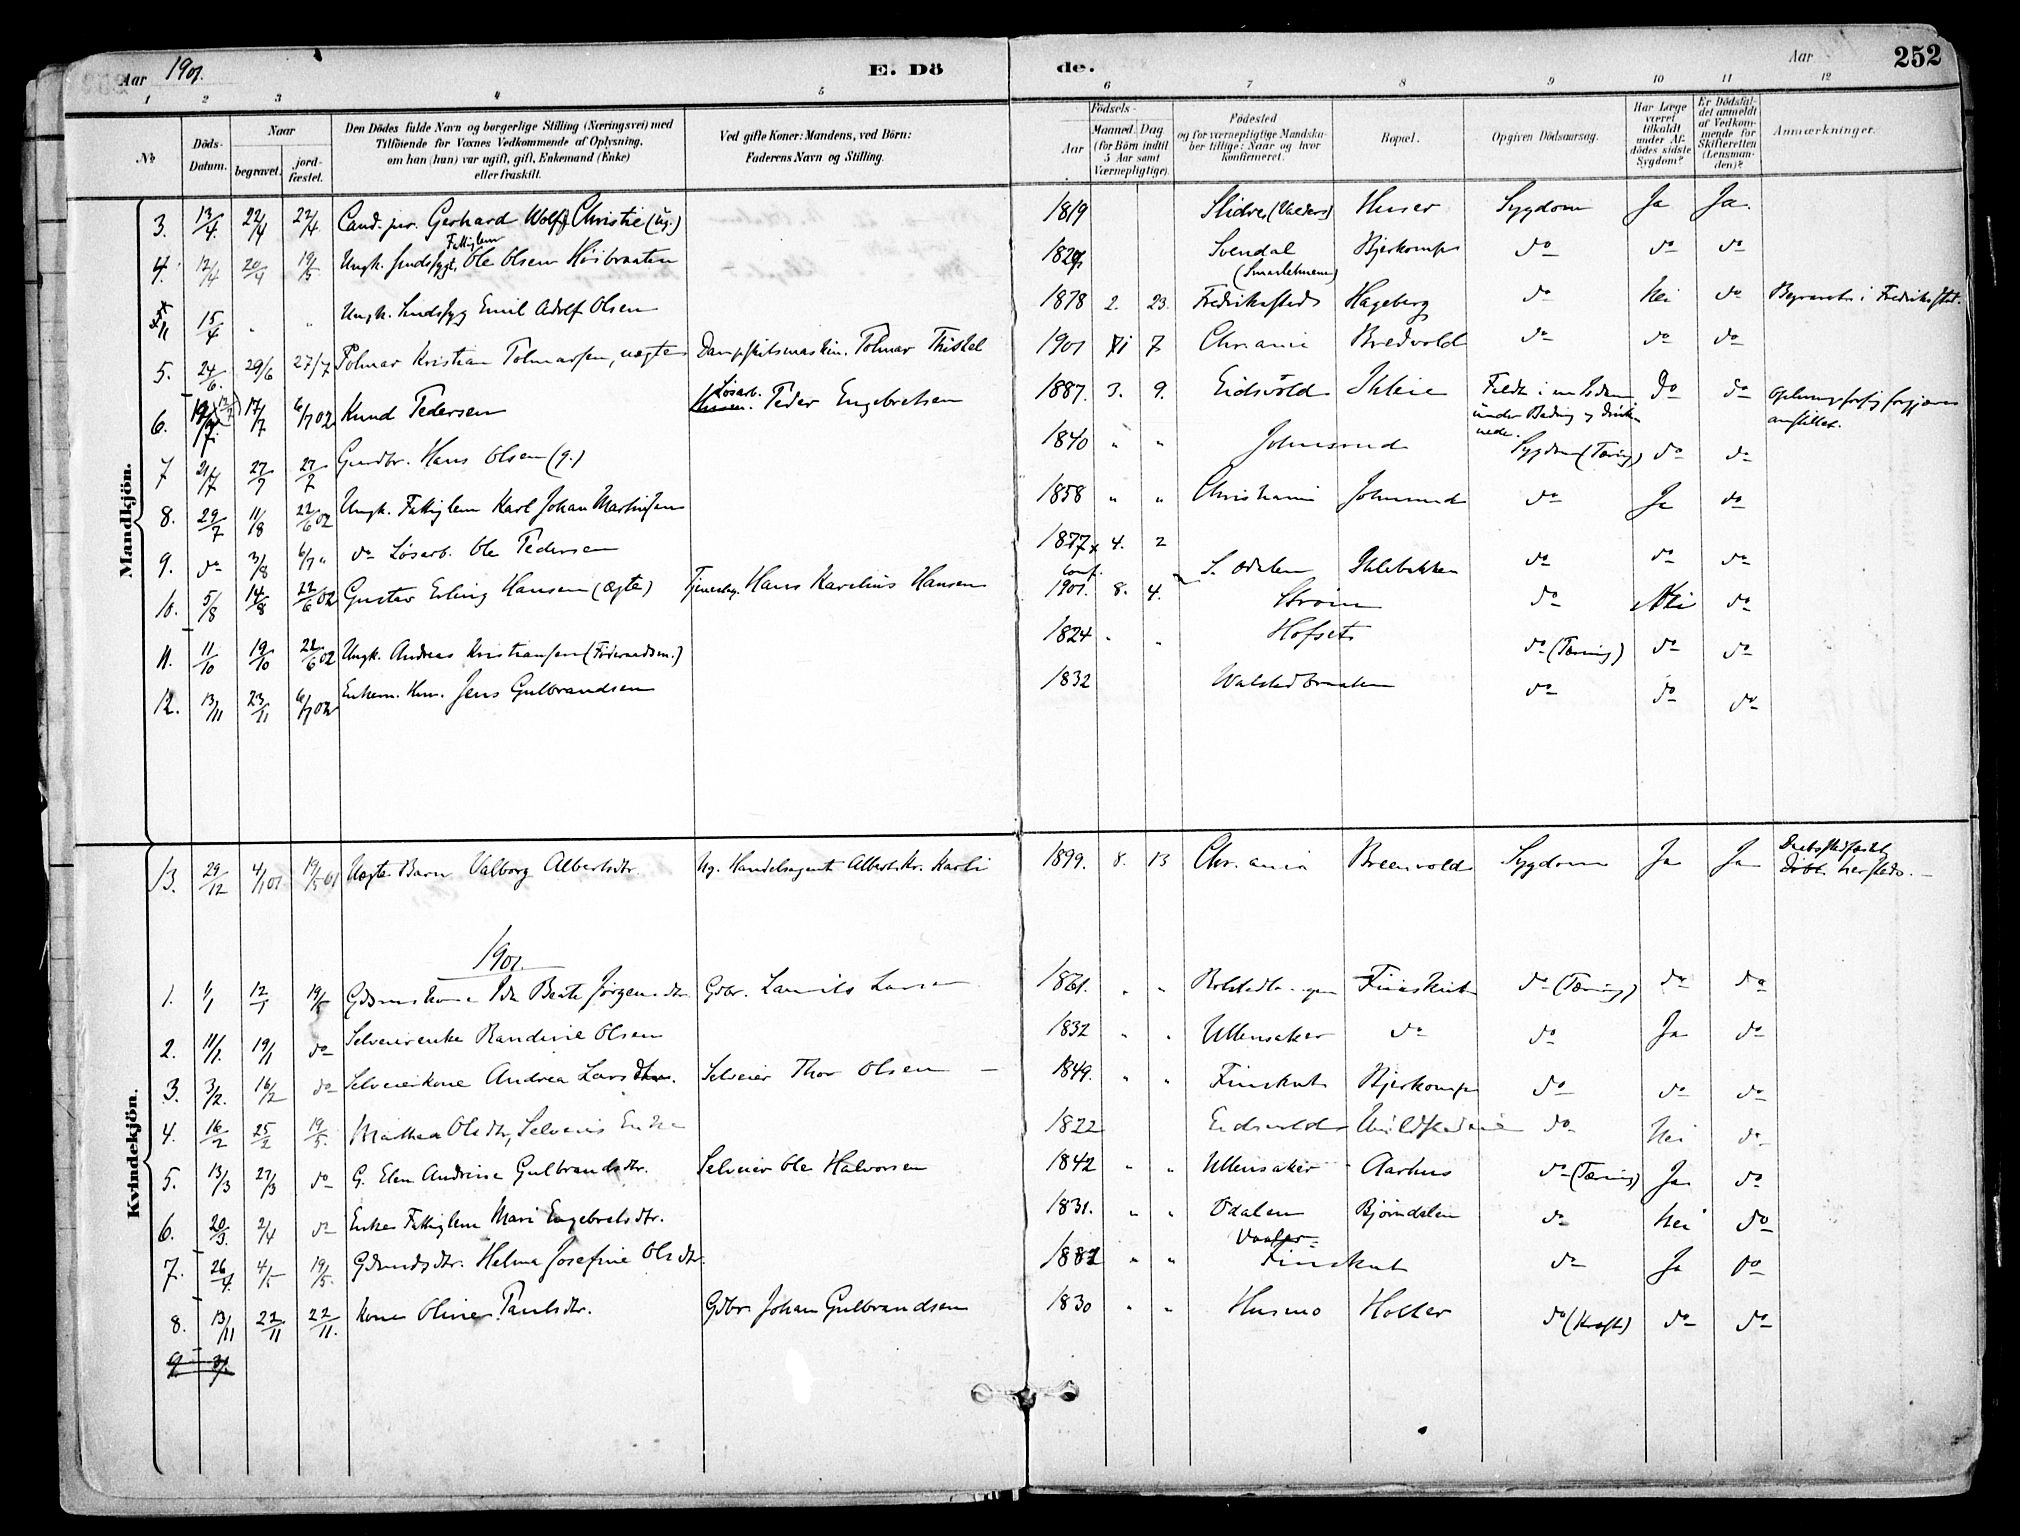 Aar 1901. E. Döde. Aar 252
1 2 3 4 5 6 7 8 9 10 11 12
No Döds-Datum. Naar begravet. jord-fæstet. Den Dödes fulde Navn og borgerlige Stilling (Næringsvei) med Tilföiende for Voxnes Vedkommende af Oplysning, om han (hun) var ugift, gift, Enkemand (Enke) eller fraskilt. Ved gifte Koner: Mandens, ved Börn: Faderens Navn og Stilling. Födsels- Aar Maaned. Dag (for Börn indtil 5 Aar samt Værnepligtige). Födested og for værnepligtige Mandskaber tillige: Naar og hvor konfirmeret. Bopæl. Opgiven Dödsaarsag. Har Læge været tilkaldt under Afdödes sidste Sygdom? Er Dödsfaldet anmeldt af Vedkommende for Skifteretten (Lensmanden)? Anmærkninger.
Mandkjön.
3. 13/4. 22/4 22/4. Cand. jur. Gerhard Wolff Christie (ug.) 1819 Slidre (Valders) Huser Sygdom Ja Ja.
4. 12/4 20/4 19/5 Ungk. sindssyg Fattiglem Ole Olsen Höibraaten 1829 Svendal (Smaalenene) Bjerkomp do do do
15/4 " " Ungk. Sindssyg Emil Adolf Olsen 1878 2. 23. Fredriksstad Hageberg do Nei do Begravet i Fredriksstad.
5. 24/6. 29/6 27/7 Tolmar Kristian Tolmarsen, uægte Dampskibsmaskin. Tolmar Thiskel 1901 7 Chr.ania Bredvold do do do
6. 17/7 6/7 02 Knud Pedersen Lösarb. Peder Engebretsen 1887. 3. 9. Eidsvold do do
under Bading og
anstillet.
7 21/7 27/7 27/7 Grdbr. Hans Olsen (g.) 1840 " " Johnsrud Sygdom (Tæring) do do
8. 29/7 11/8 22/6 02 Ungk. Fattiglem Karl Johan Martinsen 1858 " " Christiania Johnsrud do Ja do
9. do 3/8 6/7 " do Lösarb. Ole Pedersen 1877 4. 2 S. Odalen do do do
10. 5/8 14/8 22/6 02 Gustav Erling Hansen (ægte) Hans Karelius Hansen 1901. 8. 4. Ström do Nei do
11. 11/10 19/10 22/6 02 Ungk. Andreas Kristiansen (Föderaadsm.) 1824 " " Hofset do (Tæring) do do
12. 13/11 23/11 6/7 02 Enkem. Jens Gulbrandsen 1832 Walstadbraaten do do do
Kvindekjön.
13. 29/12 4/1 01 19/5 01 Uægte Barn Valborg Albertsdtr Ug. Handelsagent Albert Kr. Karli 1899. 8. 13 Chr.ania Breenvold Sygdom Ja Ja
hersteds.
1901.
1. 1/1 12/1 19/5 Ida Beate Jörgensdtr Gdbr. Lauritz Larsen 1861. " " Finskut do (Tæring) do do
2. 11/1. 19/1 do Selveierenke Randine Olsen 1832 " " Ullensaker do do Ja do
3. 3/2. 16/2 do Selveierkone Andrea Larsdtr. Selveier Thor Olsen 1849. " " Finskut Bjerkomp do do do
4. 16/2 25/2 19/5. Mathea Olsdtr, Selveiers Enke 1822 Eidsvold do Nei do
5. 13/3 27/3 do G. Elen Andrine Gulbrandsdtr. Selveier Ole Halvorsen 1842 " " Ullensaker Aarhus do (Tæring) Ja do
6. 20/3. 2/4 do Enke Fattiglem Mari Engebretsdtr. 1831. " " Odalen Björndalen do Nei do
7. 26/4. 4/5 19/5. Gdmdsdtr. Helma Josefine Olsdtr. 1882 " " Finskut do Ja do
8. 13/11 22/11 22/11. Kone Oline Paulsdtr. Gdbr. Johan Gulbrandsen 1830 " " Husmo Holter do (Kræft) do do
9